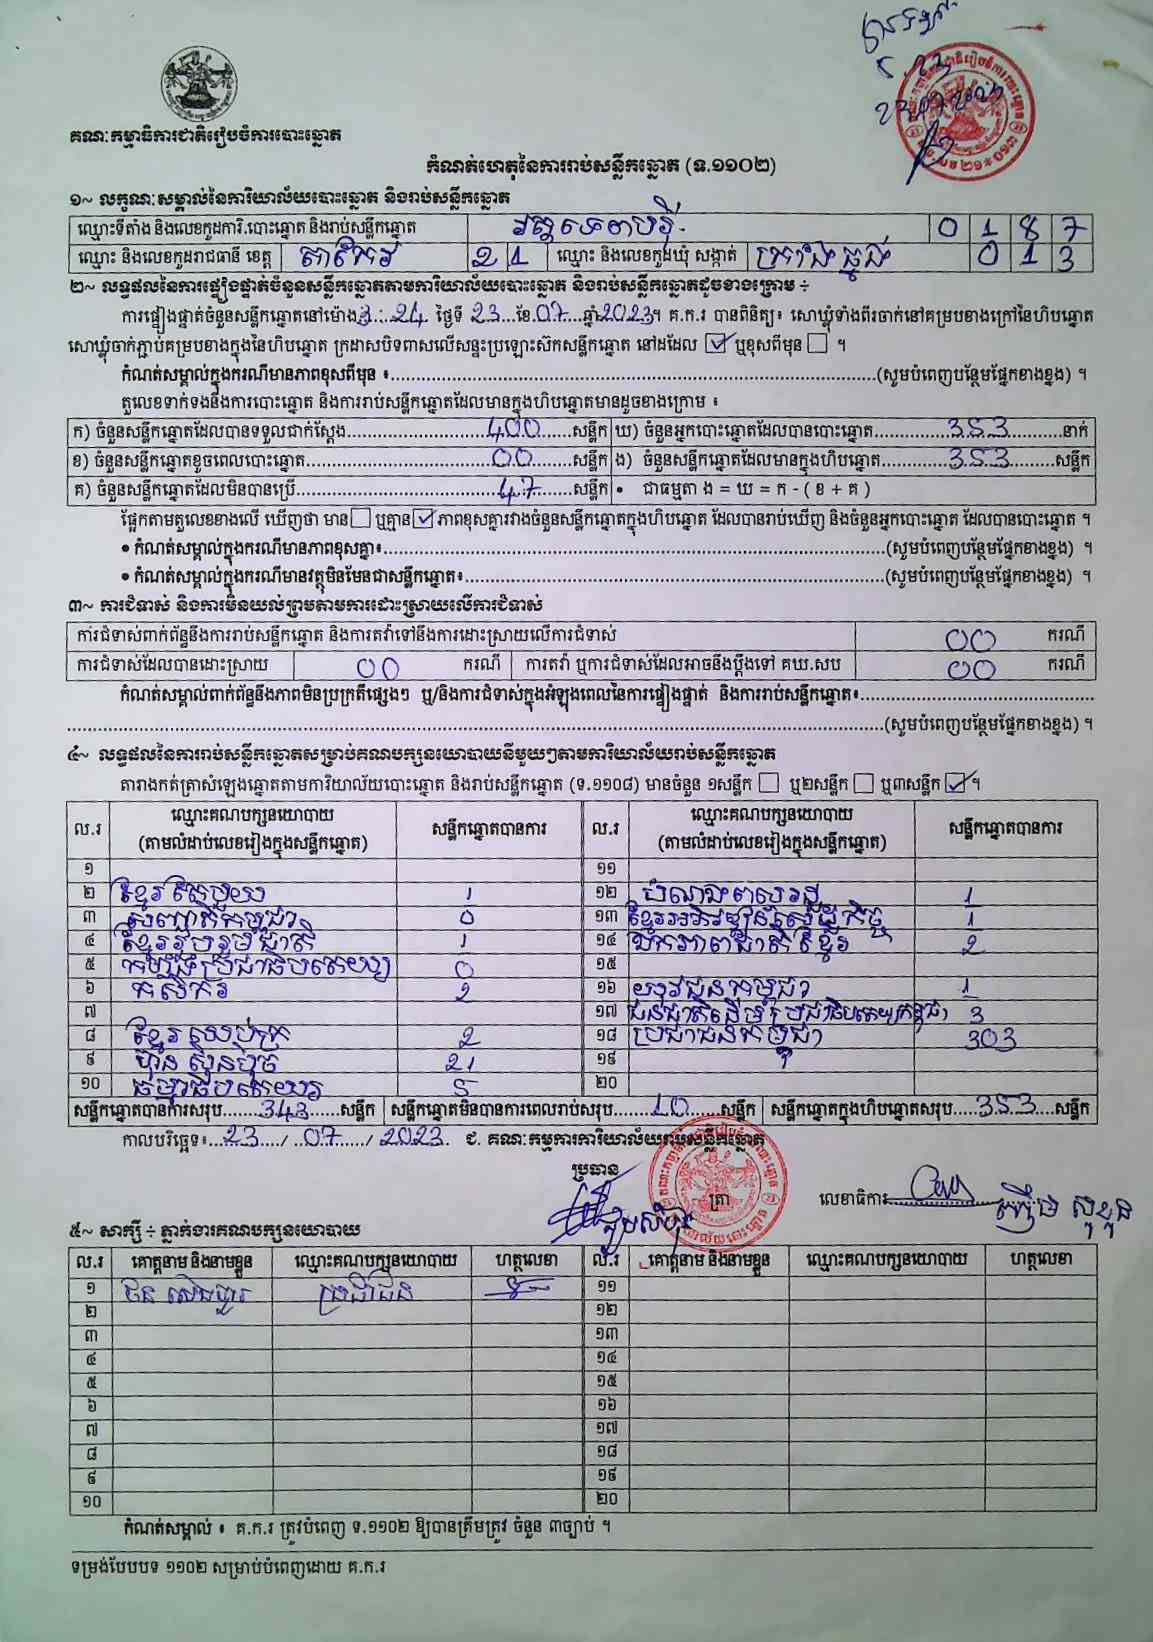 គណៈកម្មាធិការជាតិរៀបចំការបោះឆ្នោត
23
23/07/2023
កំណត់ហេតុនៃការរាប់សន្លឹកឆ្នោត (ទ.១១០២)
១~ លក្ខណៈសម្គាល់នៃការិយាល័យបោះឆ្នោត និងរាប់សន្លឹកឆ្នោត
ឈ្មោះទីតាំង និងលេខកូដការិ.បោះឆ្នោត និងរាប់សន្លឹកឆ្នោត 0 1 8 7
ឈ្មោះ និងលេខកូដរាជធានី ខេត្ត តាកែវ 2 1 ឈ្មោះ និងលេខកូដឃុំ សង្កាត់ ក្រាំងធ្នង់ 0 1 3
២~ លទ្ធផលនៃការផ្ទៀងផ្ទាត់ចំនួនសន្លឹកឆ្នោតតាមការិយាល័យបោះឆ្នោត និងរាប់សន្លឹកឆ្នោតដូចខាងក្រោម ÷
ការផ្ទៀងផ្ទាត់ចំនួនសន្លឹកឆ្នោតនៅម៉ោង 3:24 ថ្ងៃទី 23 ខែ 07 ឆ្នាំ 2023។ គ.ក.រ បានពិនិត្យ៖ សោឃ្លុំទាំងពីរចាក់នៅគម្របខាងក្រៅនៃហិបឆ្នោត
សោឃ្លុំចាក់ភ្ជាប់គម្របខាងក្នុងនៃហិបឆ្នោត ក្រដាសបិទពាសលើសន្ទះប្រឡោះស៊កសន្លឹកឆ្នោត នៅដដែល ☑ ឬខុសពីមុន ☐ ។
កំណត់សម្គាល់ក្នុងករណីមានភាពខុសពីមុន ៖...(សូមបំពេញបន្ថែមផ្នែកខាងខ្នង) ។
តួលេខទាក់ទងនឹងការបោះឆ្នោត និងការរាប់សន្លឹកឆ្នោតដែលមានក្នុងហិបឆ្នោតមានដូចខាងក្រោម ៖
ក) ចំនួនសន្លឹកឆ្នោតដែលបានទទួលជាក់ស្តែង...400...សន្លឹក ឃ) ចំនួនអ្នកបោះឆ្នោតដែលបានបោះឆ្នោត...353...នាក់
ខ) ចំនួនសន្លឹកឆ្នោតខូចពេលបោះឆ្នោត...00...សន្លឹក ង) ចំនួនសន្លឹកឆ្នោតដែលមានក្នុងហិបឆ្នោត...353...សន្លឹក
គ) ចំនួនសន្លឹកឆ្នោតដែលមិនបានប្រើ...47...សន្លឹក • ជាធម្មតា ង = ឃ = ក - ( ខ + គ )
ផ្អែកតាមតួលេខខាងលើ ឃើញថា មាន ☐ ឬគ្មាន ☑ ភាពខុសគ្នារវាងចំនួនសន្លឹកឆ្នោតក្នុងហិបឆ្នោត ដែលបានរាប់ឃើញ និងចំនួនអ្នកបោះឆ្នោត ដែលបានបោះឆ្នោត ។
• កំណត់សម្គាល់ក្នុងករណីមានភាពខុសគ្នា៖...(សូមបំពេញបន្ថែមផ្នែកខាងខ្នង) ។
• កំណត់សម្គាល់ក្នុងករណីមានវត្ថុមិនមែនជាសន្លឹកឆ្នោត៖...(សូមបំពេញបន្ថែមផ្នែកខាងខ្នង) ។
៣~ ការជំទាស់ និងការមិនយល់ព្រមតាមការដោះស្រាយលើការជំទាស់
ការជំទាស់ពាក់ព័ន្ធនឹងការរាប់សន្លឹកឆ្នោត និងការតវ៉ាទៅនឹងការដោះស្រាយលើការជំទាស់ 00 ករណី
ការជំទាស់ដែលបានដោះស្រាយ 00 ករណី ការតវ៉ា ឬការជំទាស់ដែលអាចនឹងប្តឹងទៅ គឃ.សប 00 ករណី
កំណត់សម្គាល់ពាក់ព័ន្ធនឹងភាពមិនប្រក្រតីផ្សេងៗ ឬ/និងការជំទាស់ក្នុងអំឡុងពេលនៃការផ្ទៀងផ្ទាត់ និងការរាប់សន្លឹកឆ្នោត៖...
...(សូមបំពេញបន្ថែមផ្នែកខាងខ្នង) ។
៤~ លទ្ធផលនៃការរាប់សន្លឹកឆ្នោតសម្រាប់គណបក្សនយោបាយនីមួយៗតាមការិយាល័យរាប់សន្លឹកឆ្នោត
តារាងកត់ត្រាសំឡេងឆ្នោតតាមការិយាល័យបោះឆ្នោត និងរាប់សន្លឹកឆ្នោត (ទ.១១០៨) មានចំនួន ១សន្លឹក ☐ ឬ២សន្លឹក ☐ ឬ៣សន្លឹក ☑ ។
ល.រ ឈ្មោះគណបក្សនយោបាយ (តាមលំដាប់លេខរៀងក្នុងសន្លឹកឆ្នោត) សន្លឹកឆ្នោតបានការ ល.រ ឈ្មោះគណបក្សនយោបាយ (តាមលំដាប់លេខរៀងក្នុងសន្លឹកឆ្នោត) សន្លឹកឆ្នោតបានការ
១ ១១
២ ខ្មែរតែមួយ 1 ១២ 1
៣ សញ្ជាតិកម្ពុជា 0 ១៣ ខ្មែរអភិវឌ្ឍន៍សេដ្ឋកិច្ច 1
៤ ខ្មែររួបរួមជាតិ 1 ១៤ ឯកភាពជាតិខ្មែរ 2
៥ កម្លាំងប្រជាធិបតេយ្យ 0 ១៥
៦ កសិករ 2 ១៦ យុវជនកម្ពុជា 1
៧ ១៧ ជនជាតិដើមប្រជាធិបតេយ្យកម្ពុជា 3
៨ ខ្មែរឈប់ក្រ 2 ១៨ ប្រជាជនកម្ពុជា 303
៩ ហ៊្វុនស៊ិនប៉ិច 21 ១៩
១០ ធម្មាធិបតេយ្យ 5 ២០
សន្លឹកឆ្នោតបានការសរុប...343...សន្លឹក សន្លឹកឆ្នោតមិនបានការពេលរាប់សរុប...10...សន្លឹក សន្លឹកឆ្នោតក្នុងហិបឆ្នោតសរុប...353...សន្លឹក
កាលបរិច្ឆេទ៖ 23 / 07 / 2023 ជ. គណៈកម្មការការិយាល័យរាប់សន្លឹកឆ្នោត
ប្រធាន
ត្រា
លេខាធិការ
៥~ សាក្សី ÷ ភ្នាក់ងារគណបក្សនយោបាយ
ល.រ គោត្តនាម និងនាមខ្លួន ឈ្មោះគណបក្សនយោបាយ ហត្ថលេខា ល.រ គោត្តនាម និងនាមខ្លួន ឈ្មោះគណបក្សនយោបាយ ហត្ថលេខា
១ ប្រជាជន ១១
២ ១២
៣ ១៣
៤ ១៤
៥ ១៥
៦ ១៦
៧ ១៧
៨ ១៨
៩ ១៩
១០ ២០
កំណត់សម្គាល់ ៖ គ.ក.រ ត្រូវបំពេញ ទ.១១០២ ឱ្យបានត្រឹមត្រូវ ចំនួន ៣ច្បាប់ ។
ទម្រង់បែបបទ ១១០២ សម្រាប់បំពេញដោយ គ.ក.រ